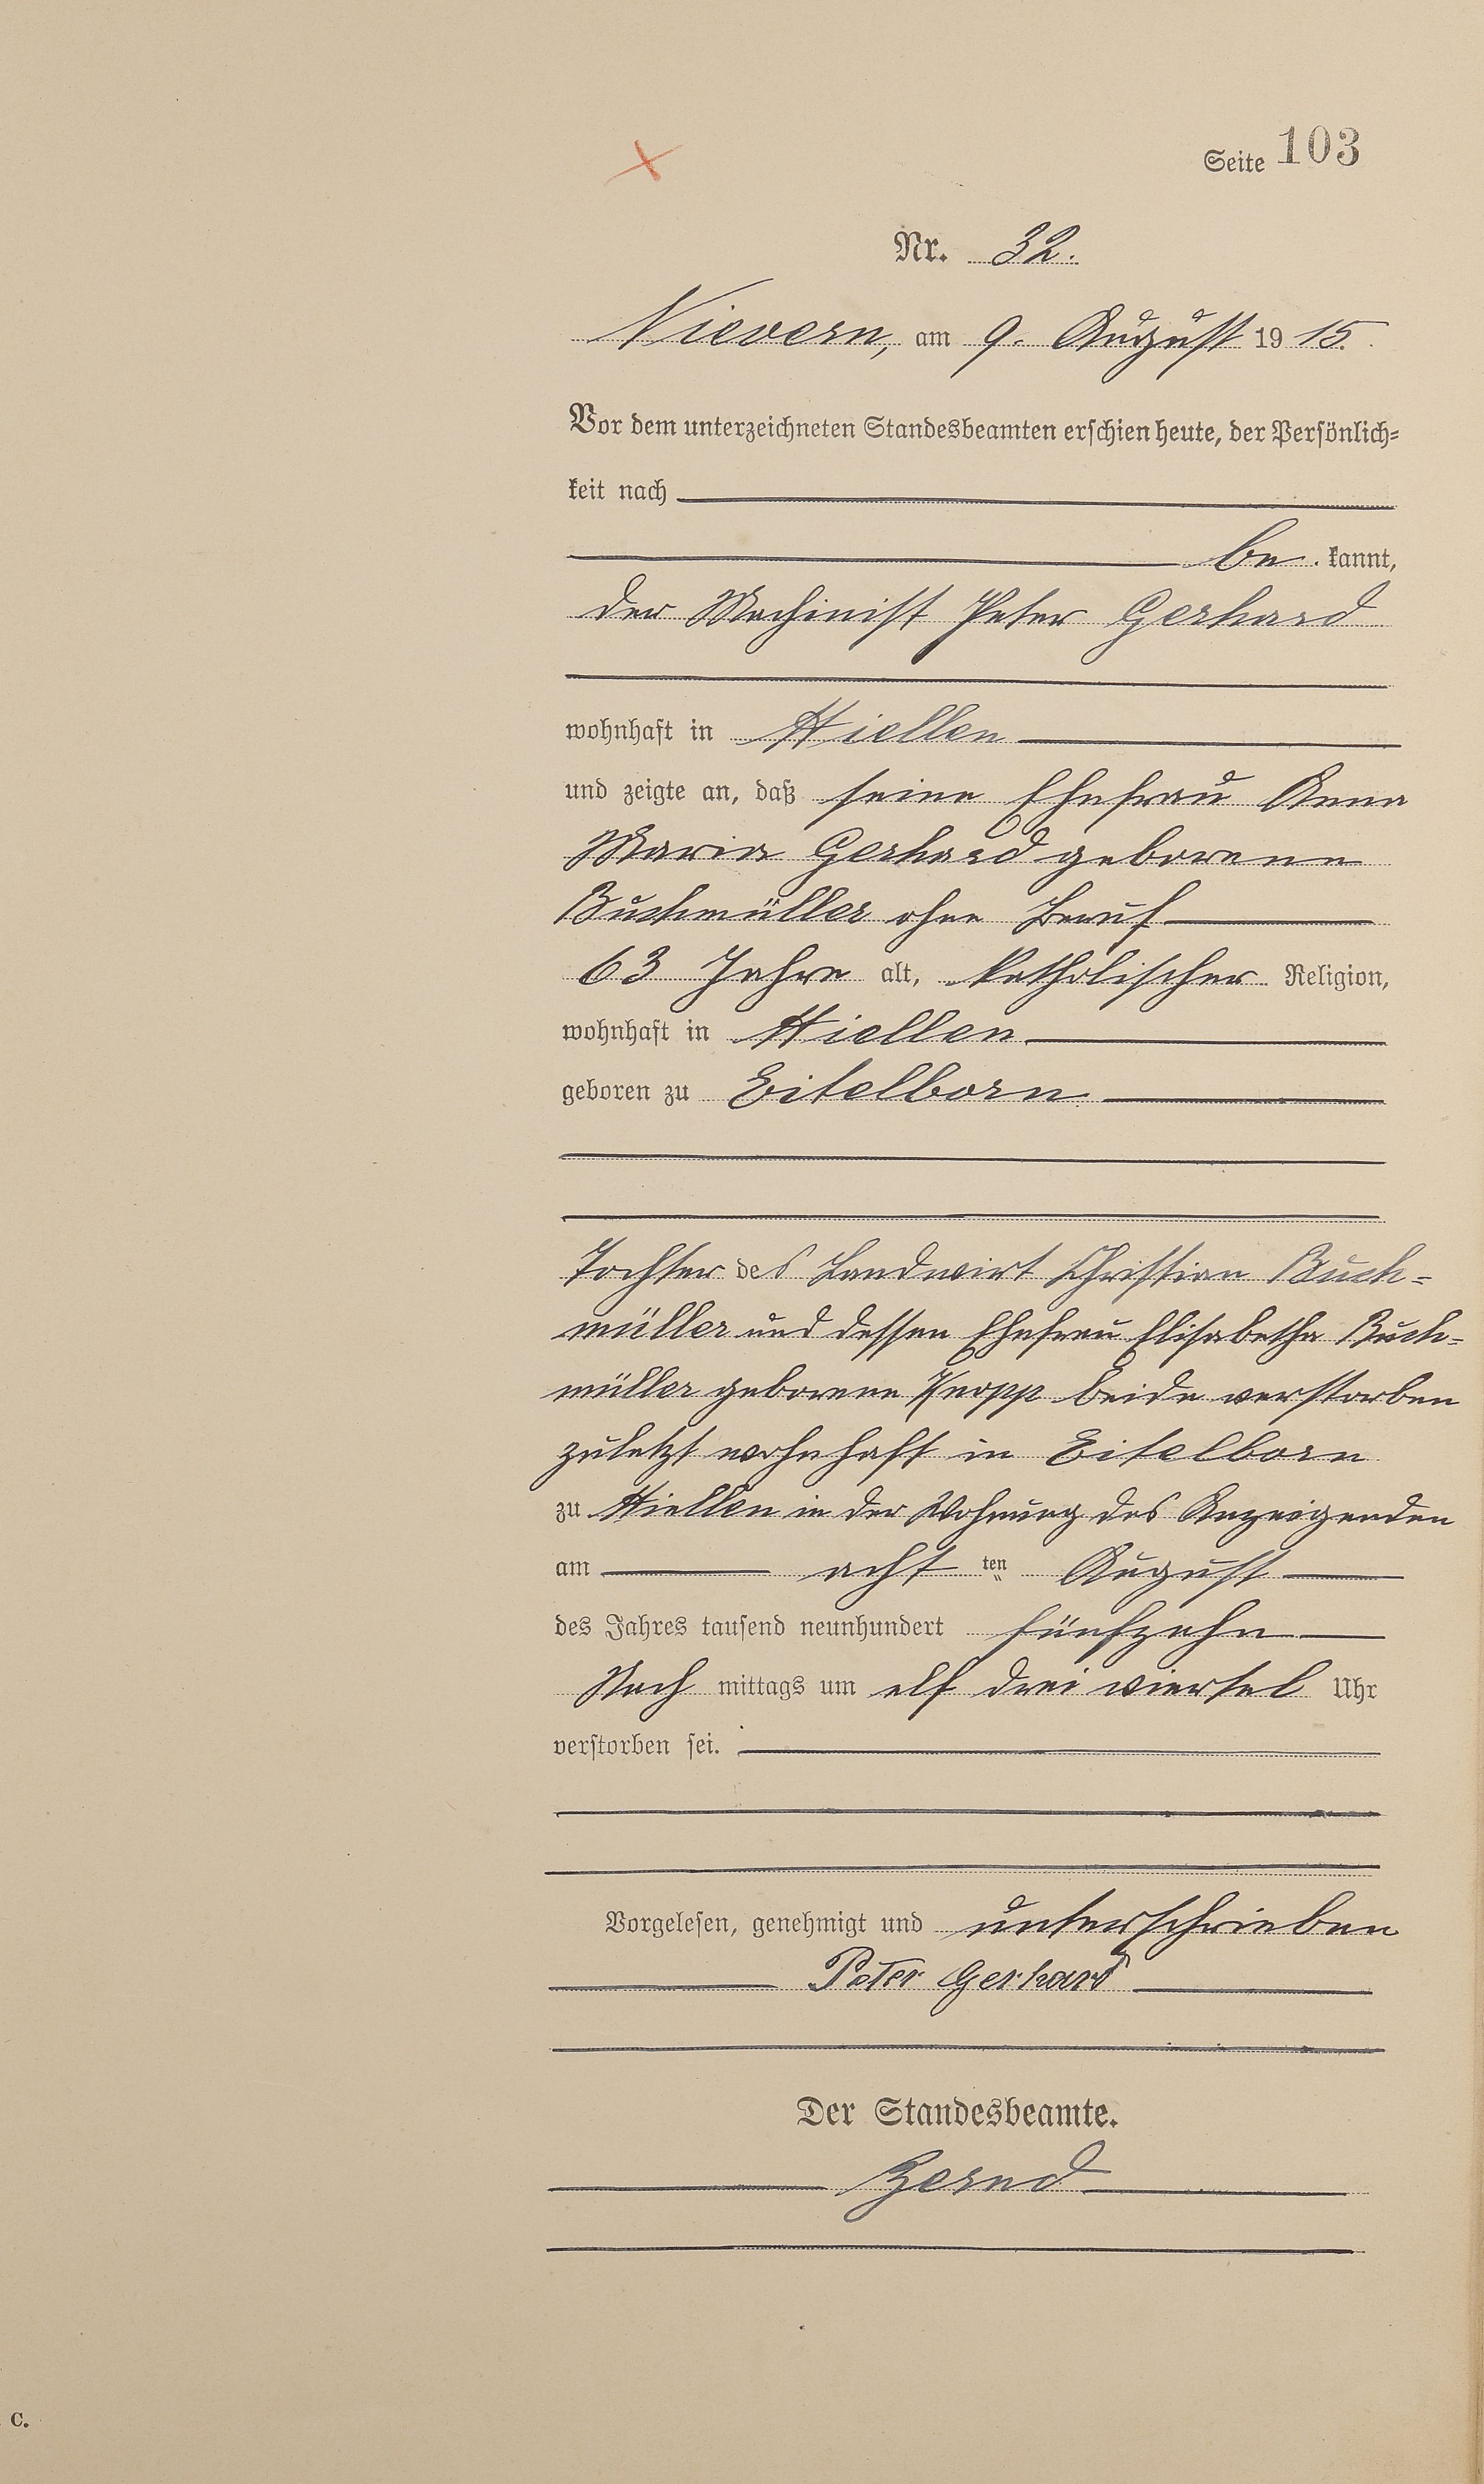 Seite 103
Nr. 32.
Nievern, am 9. August 1915.
Vor dem unterzeichneten Standesbeamten erschien heute, der Persönlich-
keit nach
be kannt,
der Maschinist Peter Gerhard
wohnhaft in Miellen
und zeigte an, daß seine Ehefrau Anna
Maria Gerhard geborene
Buchmüller ohne Beruf
63 Jahre alt, katholischer Religion,
wohnhaft in Miellen
geboren zu Eitelborn
Tochter des Landwirt Christian Buch-
müller und dessen Ehefrau Elisabetha Buch-
müller geborene Knopp beide verstorben
zuletzt wohnhaft in Eitelborn
zu Miellen in der Wohnung des Anzeigenden
am acht ten August
des Jahres tausend neunhundert fünfzehn
Nach mittags um elf drei viertel Uhr
verstorben sei.
Vorgelesen, genehmigt und unterschrieben
Peter Gerhard
Der Standesbeamte.
Zernd
C.